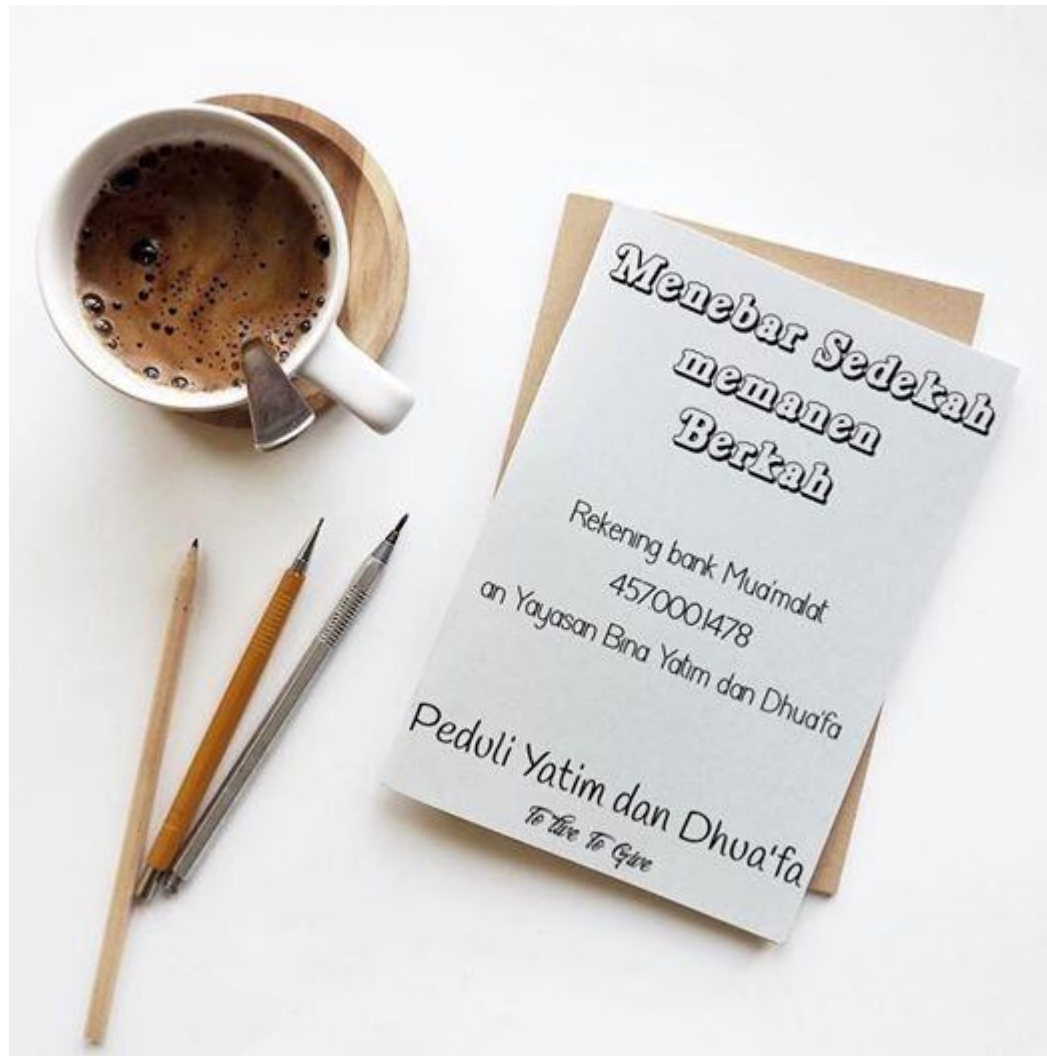 Menebar Sedekah
memanen
Berkah
Rekening bank Mua'malat
4570001478
an Yayasan Bina Yatim dan Dhua'fa
Peduli Yatim dan Dhua'fa
To live To Give